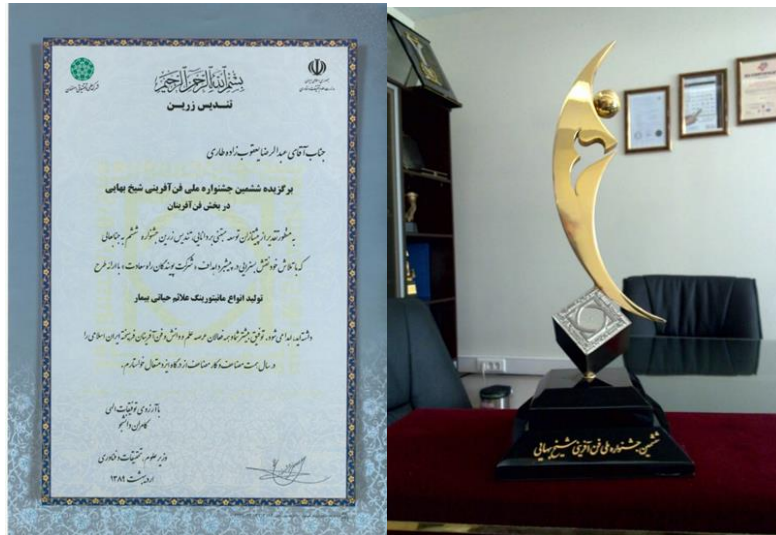 بسم الله الرحمن الرحیم
تندیس زرین
جناب آقای عبدالرضا یعقوب‌زاده طاری
برگزیده ششمین جشنواره ملی فن‌آفرینی شیخ بهایی
در بخش فن‌آفرینان
به منظور تقدیر از پیشتازان توسعه مبتنی بر دانایی، تندیس زرین جشنواره ششم به جنابعالی
که با تلاش خود نقش بسزایی در پیشبرد اهداف «شرکت پویندگان راه سعادت» با ارائه طرح
تولید انواع مانیتورینگ علائم حیاتی بیمار
داشته‌اید، اهدا می شود. توفیق بیشتر شما و همه فعالان عرصه علم و دانش و فن‌آفرینان فرهیخته ایران اسلامی را
در سال همت مضاعف و کار مضاعف از درگاه ایزد متعال خواستارم.
با آرزوی توفیقات الهی
کامران دانشجو
وزیر علوم، تحقیقات و فناوری
اردیبهشت ۱۳۸۹
ششمین جشنواره ملی فن آفرینی شیخ بهایی